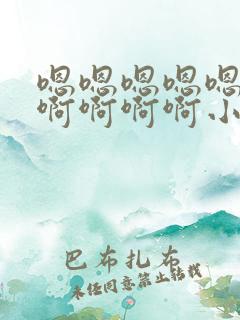 嗯嗯嗯嗯嗯
啊啊啊啊小
巴布扎布
未经同意禁止转载